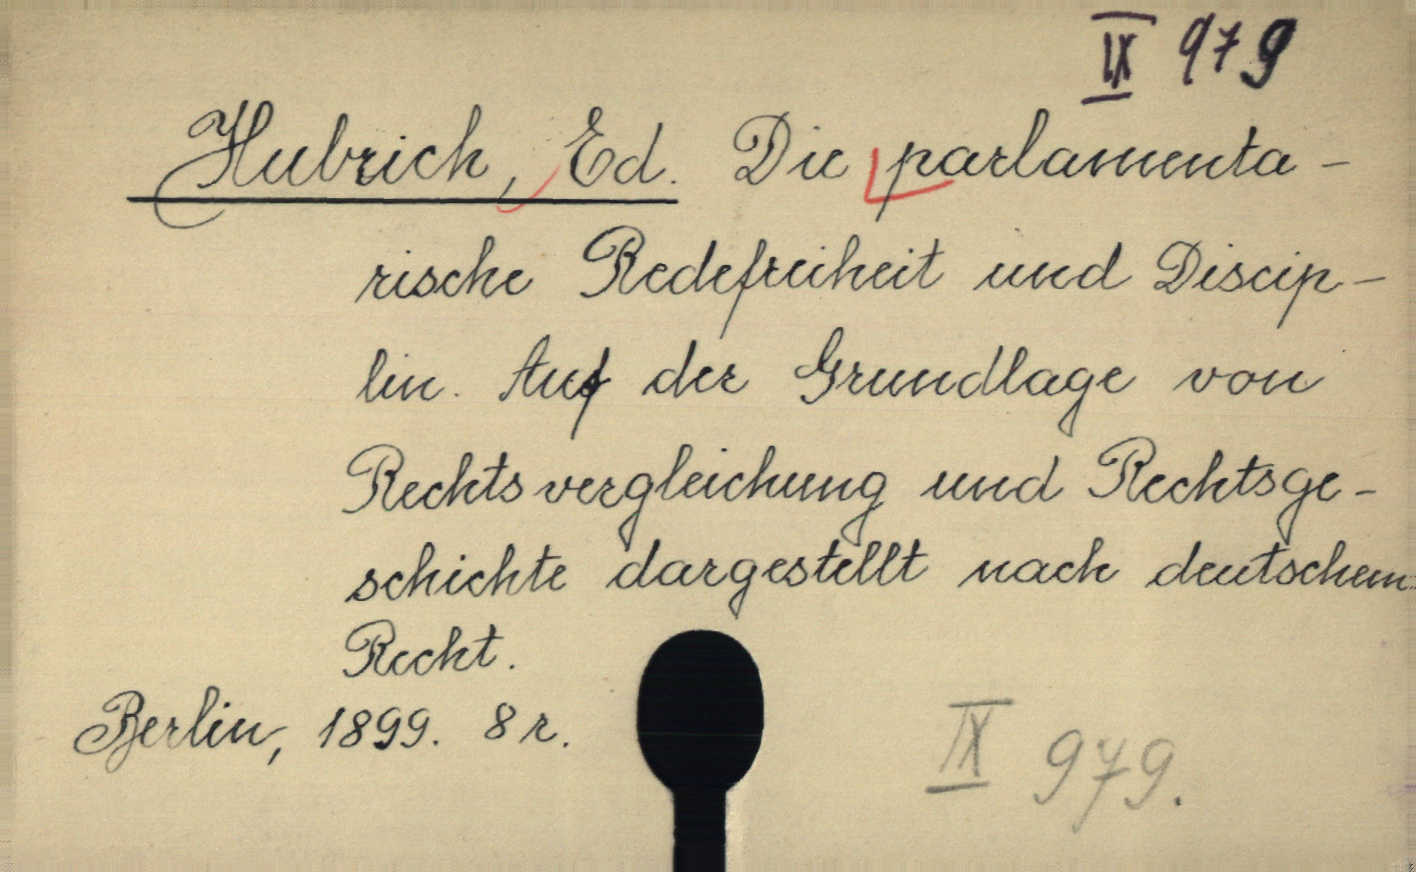 IX 979
Hubrich, Ed. Die parlamenta-
rische Redefreiheit und Discip-
lin. Auf der Grundlage von
Rechtsvergleichung und Rechtsge-
schichte dargestellt nach deutschem
Recht.
Berlin, 1899. 8 r.
IX 979.